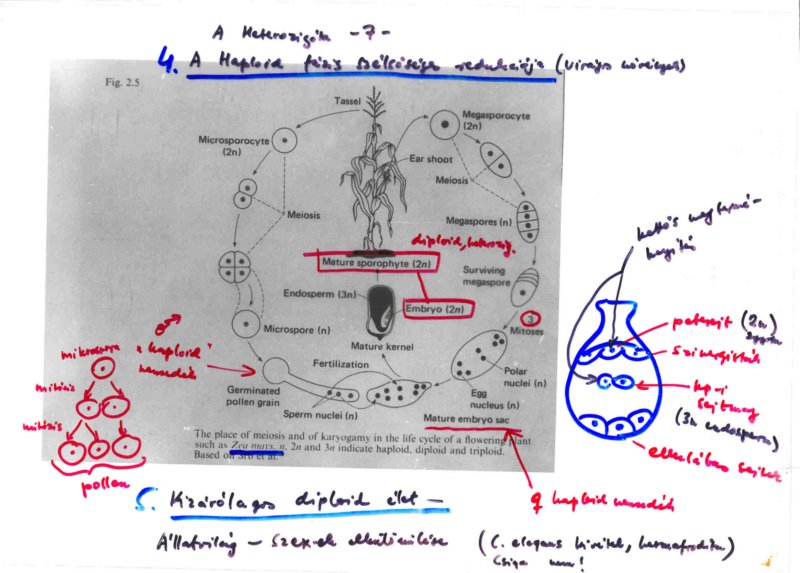 A Heterozigóta -7-
4. A Haploid fázis redukciója (virágos növények)
Fig. 2.5
Tassel
Microsporocyte (2n)
Megasporocyte (2n)
Ear shoot
Meiosis
Meiosis
Megaspores (n)
diploid, heterozig.
Mature sporophyte (2n)
Surviving megaspore
Endosperm (3n)
Embryo (2n)
3
Mitoses
Microspore (n)
Mature kernel
Fertilization
Polar nuclei (n)
Germinated pollen grain
Egg nucleus (n)
Sperm nuclei (n)
Mature embryo sac
The place of meiosis and of karyogamy in the life cycle of a flowering plant
such as Zea mays. n, 2n and 3n indicate haploid, diploid and triploid.
Based on Srb et al.
♂
"haploid"
nemzedék
mikrospóra
mitózis
mitózis
pollen
kettős megtermé-
kenyítés
petesejt (2n)
zygóta
szinergisták
kp-i
sejtmag
(3n endosperm)
ellenlábas sejtek
♀ haploid nemzedék
5. Kizárólagos diploid élet —
Állatvilág — Szexek elkülönülése (C. elegans kivétel, hermafrodita)
Csiga nem!